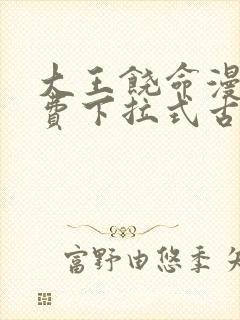 大王饶命漫
费下拉式古
富野由悠季 矢